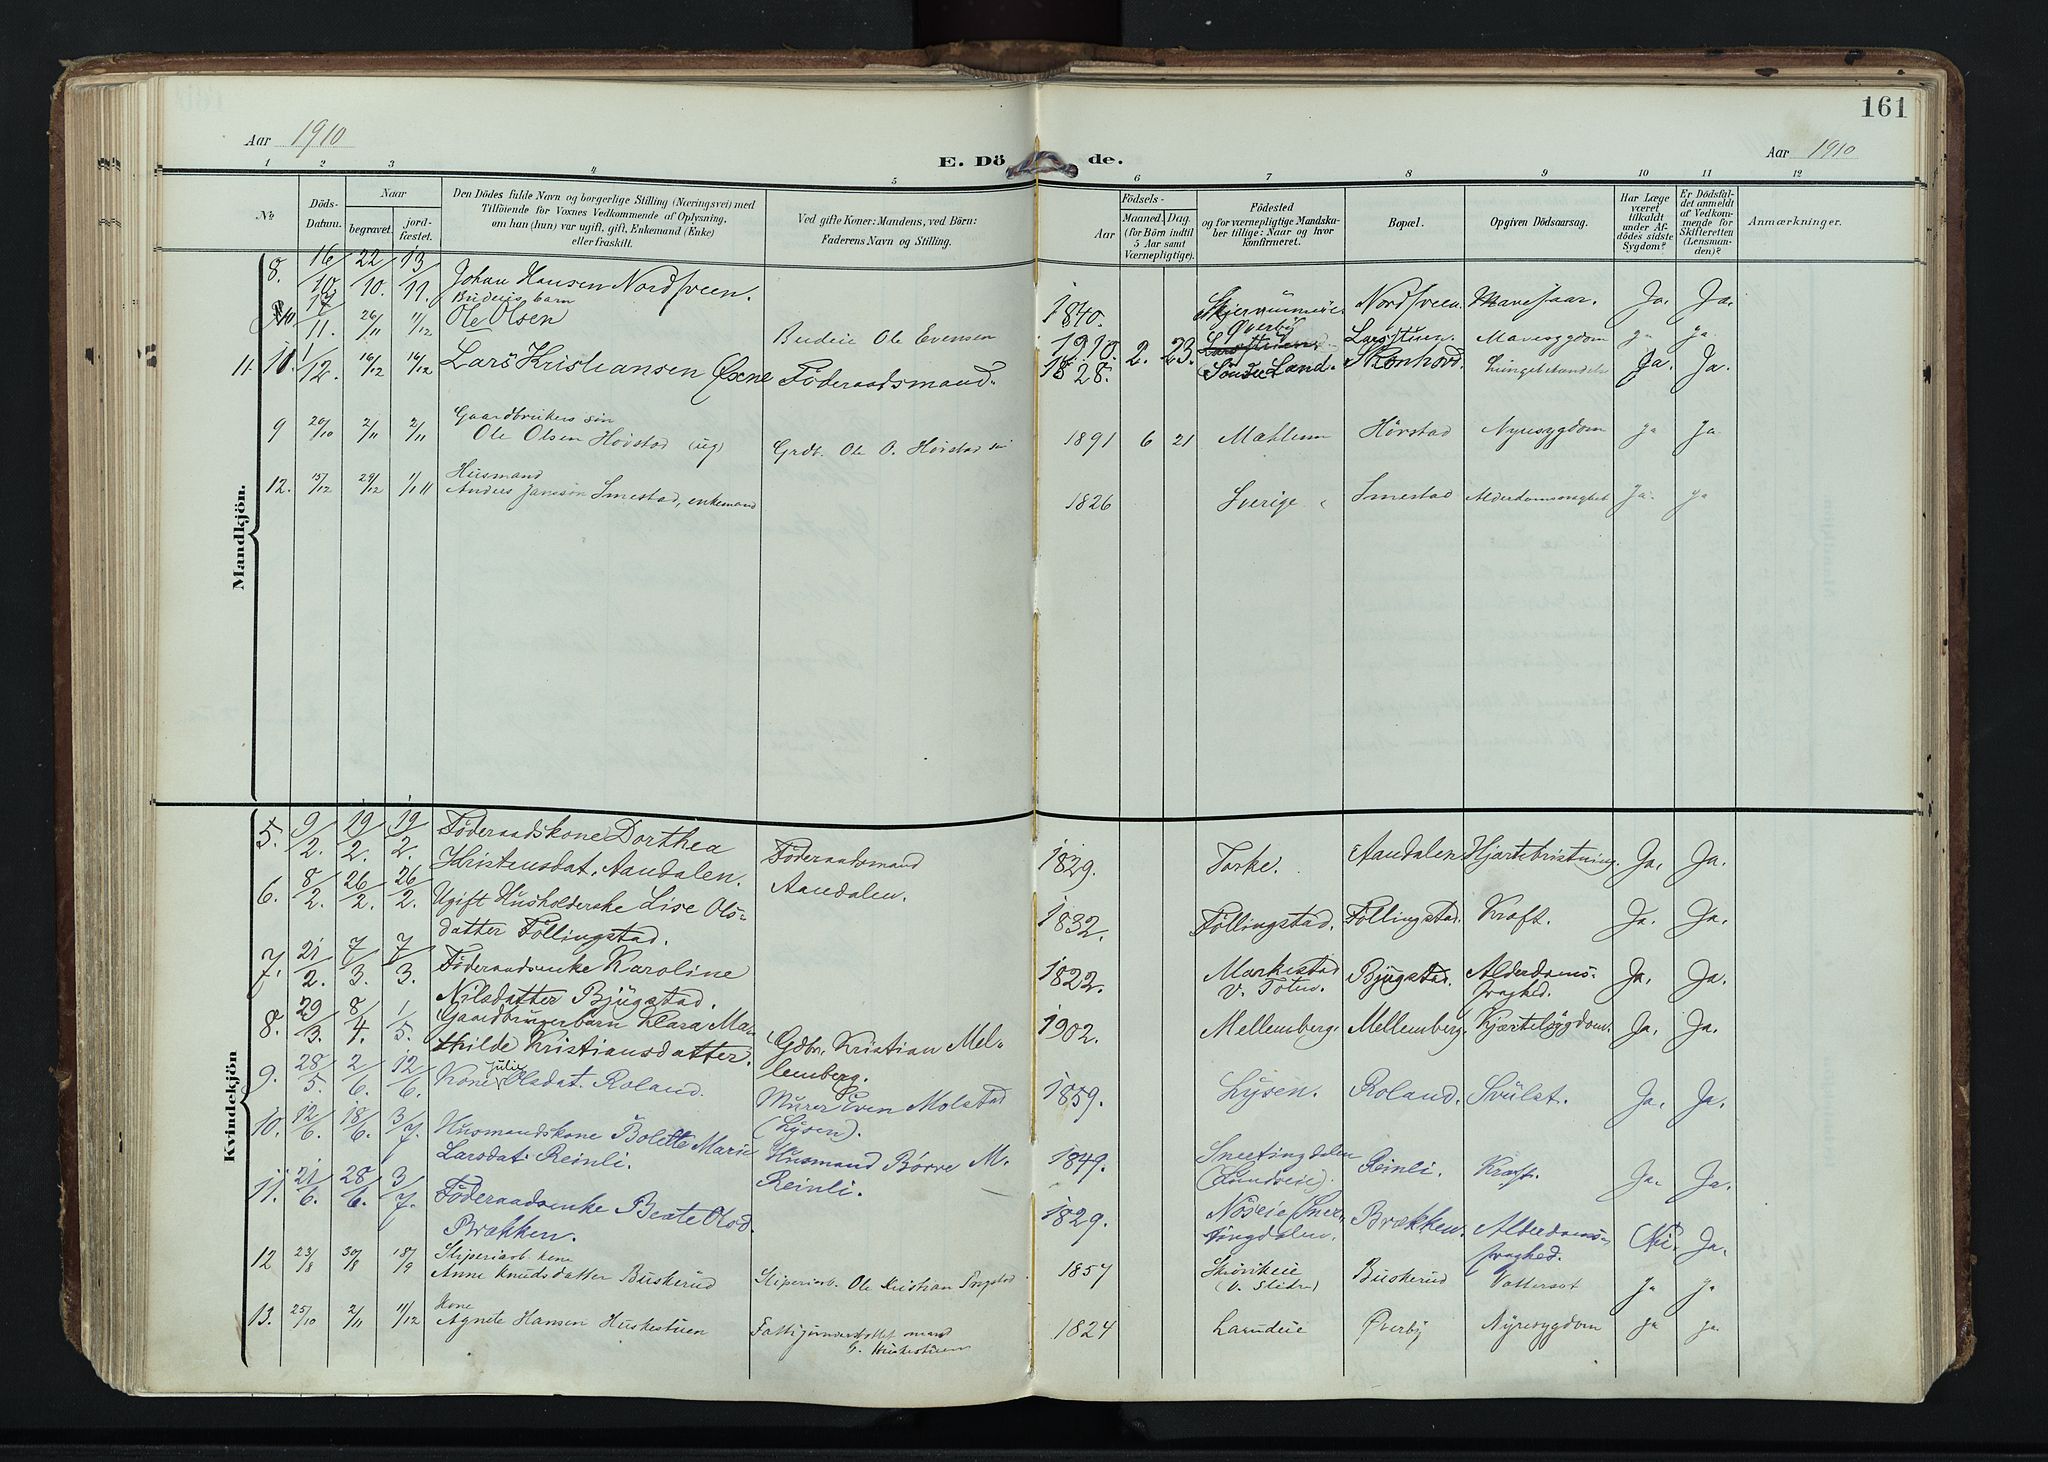 161
Aar 1910
E. Döde.
Aar 1910
1 2 3 4 5 6 7 8 9 10 11 12
№
Döds-Datum.
Naar
begravet.
jord-fæstet.
Den Dödes fulde Navn og borgerlige Stilling (Næringsvei) med
Tilföiende for Voxnes Vedkommende af Oplysning,
om han (hun) var ugift, gift, Enkemand (Enke)
eller fraskilt.
Ved gifte Koner: Mandens, ved Börn:
Faderens Navn og Stilling.
Födsels-
Aar
Maaned. Dag.
(for Börn indtil
5 Aar samt
Værnepligtige).
Födested
og for værnepligtige Mandska-
ber tillige: Naar og hvor
konfirmeret.
Bopæl.
Opgiven Dödsaarsag.
Har Læge
været
tilkaldt
under Af-
dödes sidste
Sygdom?
Er Dödsfal-
det anmeldt
af Vedkom-
mende for
Skifteretten
(Lensman-
den)?
Anmærkninger.
Mandkjön.
8. 16/10 22/10. 13/11. Johan Hansen Nordsveen. 1840. Nordsveen. Mavesaar. Ja. Ja.
10 17/11. 26/11 11/12 Budeies barn
Ole Olsen Budeie Ole Evensen 1910. 2. 23. Øverby Larsstuen. Mavesygdom ja ja
11. 10. 1/12. 16/12 16/12 Lars Kristiansen Føderaadsmand. 1828. Søndre Land. Ja. Ja.
9 20/10 2/11 2/11 Gaardbrukers søn
Ole Olsen Hovstad (ug) Grdb. Ole O. Hovstad 1891 6 21 Mæhlum Hovstad Nyresygdom ja Ja
12. 15/12 29/12 1/1 11 Husmand
Anders Jansson Smestad, enkemand 1826 Sverige Smestad Alderdomssvaghet Ja. ja
Kvindekjön
5. 9/2. 19/2. 19/2. Føderaadskone Dorthea
Kristensdat. Aandalen. Føderaadsmand
Aandalen. 1829. Torke. Aandalen Hjærtebristning. Ja. Ja.
6. 8/2. 26/2. 26/2. Ugift Husholderske Lise Ols-
datter Føllingstad. 1832. Føllingstad. Føllingstad. Kræft. Ja. Ja.
7. 21/2. 7/3. 7/3. Føderaadsenke Karoline
Nilsdatter Bjügstad. 1822. Markestad
V. Toten. Bjügstad. Alderdoms-
svaghed. Ja. Ja.
8. 29/3. 8/4. 1/5. Gaardbrugerbarn Klara Ma-
thilde Kristiansdatter. Gdbr. Kristian Mel-
lemberg. 1902. Mellemberg. Mellemberg. Hjærtesygdom. Ja. Ja.
9. 28/5. 2/6. 12/6. Kone Julie Olsdat. Roland. Murer Even Molstad
(Lysen). 1859. Lysen. Roland. Svulst. Ja. Ja.
10. 12/6. 18/6. 3/7. Husmandskone Bolette Marie
Larsdat. Reinli. Husmand Børre M.
Reinli. 1849. Snertingdalen Reinli. Kræft. Ja. Ja.
11. 21/6. 28/6. 3/7. Føderaadsenke Beate Olsd.
Brækken. 1829. Nøseie (Sner-
tingdalen. Brækken. Alderdoms-
svaghed. Nei. Ja.
12 23/8 30/8 18/9 Sliperiarb. kone
Anne Knudsdatter Buskerud Sliperiarb. Ole Kristian 1857 (V. Slidre) Buskerud Vattersot Ja ja
13. 25/10 2/11 11/12 Kone
Agnete Hansen Huskestuen Fattigunderstøttet mand
Huskestuen 1824 Øverby Nyresygdom ja ja.